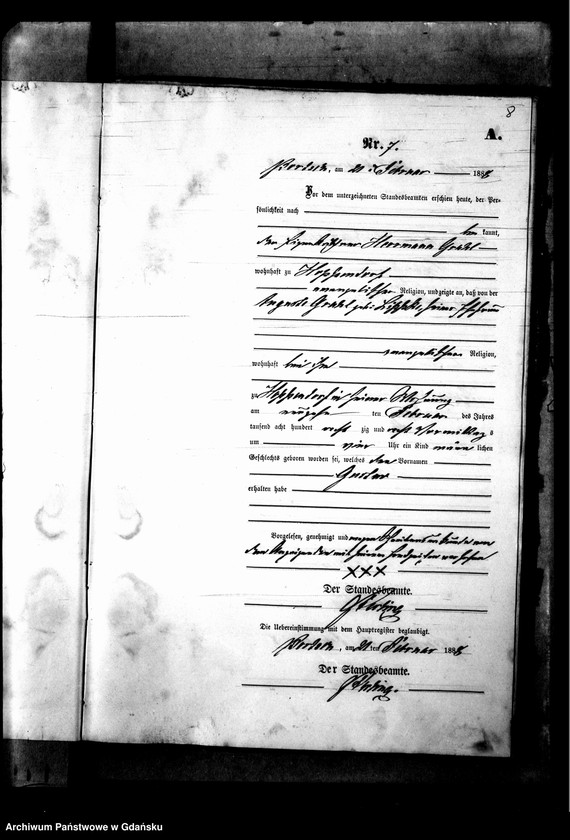 8
A.
Nr. 7.
am 21 ten Februar 1888
Vor dem unterzeichneten Standesbeamten erschien heute, der Per-
sönlichkeit nach
be kannt,
der Herrmann
wohnhaft zu Hoppendorf
evangelischer Religion, und zeigte an, daß von der
Auguste geb. seiner Ehefrau
evangelischer Religion,
wohnhaft bei ihm
zu Hoppendorf in seiner Wohnung
am ten Februar des Jahres
tausend acht hundert acht zig und acht Vormittags
um vier Uhr ein Kind männ lichen
Geschlechts geboren worden sei, welches den Vornamen
Gustav
erhalten habe
Vorgelesen, genehmigt und wegen Schreibensunkunde von
dem Anzeigenden mit seinem Handzeichen versehen
XXX
Der Standesbeamte.
Die Uebereinstimmung mit dem Hauptregister beglaubigt.
am 21 ten Februar 1888
Der Standesbeamte.
Archiwum Państwowe w Gdańsku